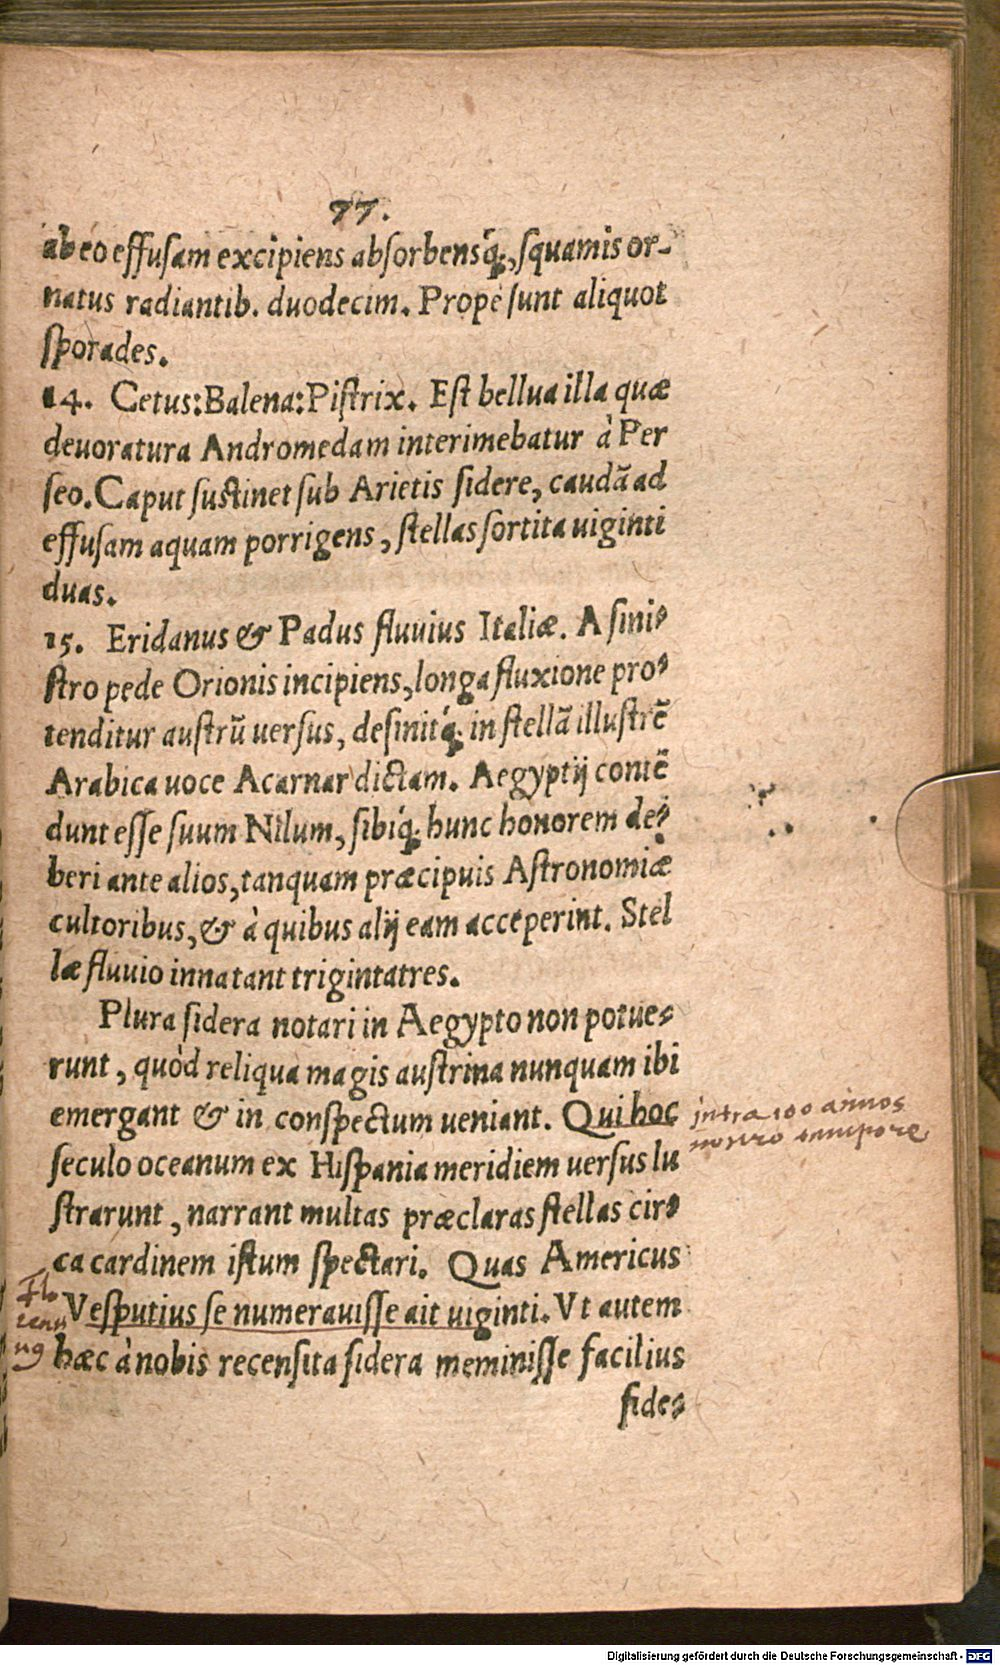 77.
ab eo effusam excipiens absorbensq́;, squamis or-
natus radiantib. duodecim. Prope sunt aliquot
sporades.
14. Cetus: Balena: Pistrix. Est bellua illa quæ
deuoratura Andromedam interimebatur à Per
seo. Caput sustinet sub Arietis sidere, caudã ad
effusam aquam porrigens, stellas sortita uiginti
duas.
15. Eridanus & Padus fluuius Italiæ. A sini-
stro pede Orionis incipiens, longa fluxione pro-
tenditur austrũ uersus, desinitq́; in stellã illustrẽ
Arabica uoce Acarnar dictam. Aegyptij contẽ
dunt esse suum Nilum, sibiq́; hunc honorem de-
beri ante alios, tanquam præcipuis Astronomiæ
cultoribus, & à quibus alij eam acceperint. Stel
læ fluuio innatant trigintatres.
Plura sidera notari in Aegypto non potue-
runt, quòd reliqua magis austrina nunquam ibi
emergant & in conspectum ueniant. Qui hoc
intra 100 annos
nostro tempore
seculo oceanum ex Hispania meridiem uersus lu
strarunt, narrant multas præclaras stellas cir-
ca cardinem istum spectari. Quas Americus
Flo
renti
nus
Vesputius se numerauisse ait uiginti. Vt autem
hæc à nobis recensita sidera meminisse facilius
side-
Digitalisierung gefördert durch die Deutsche Forschungsgemeinschaft - DFG